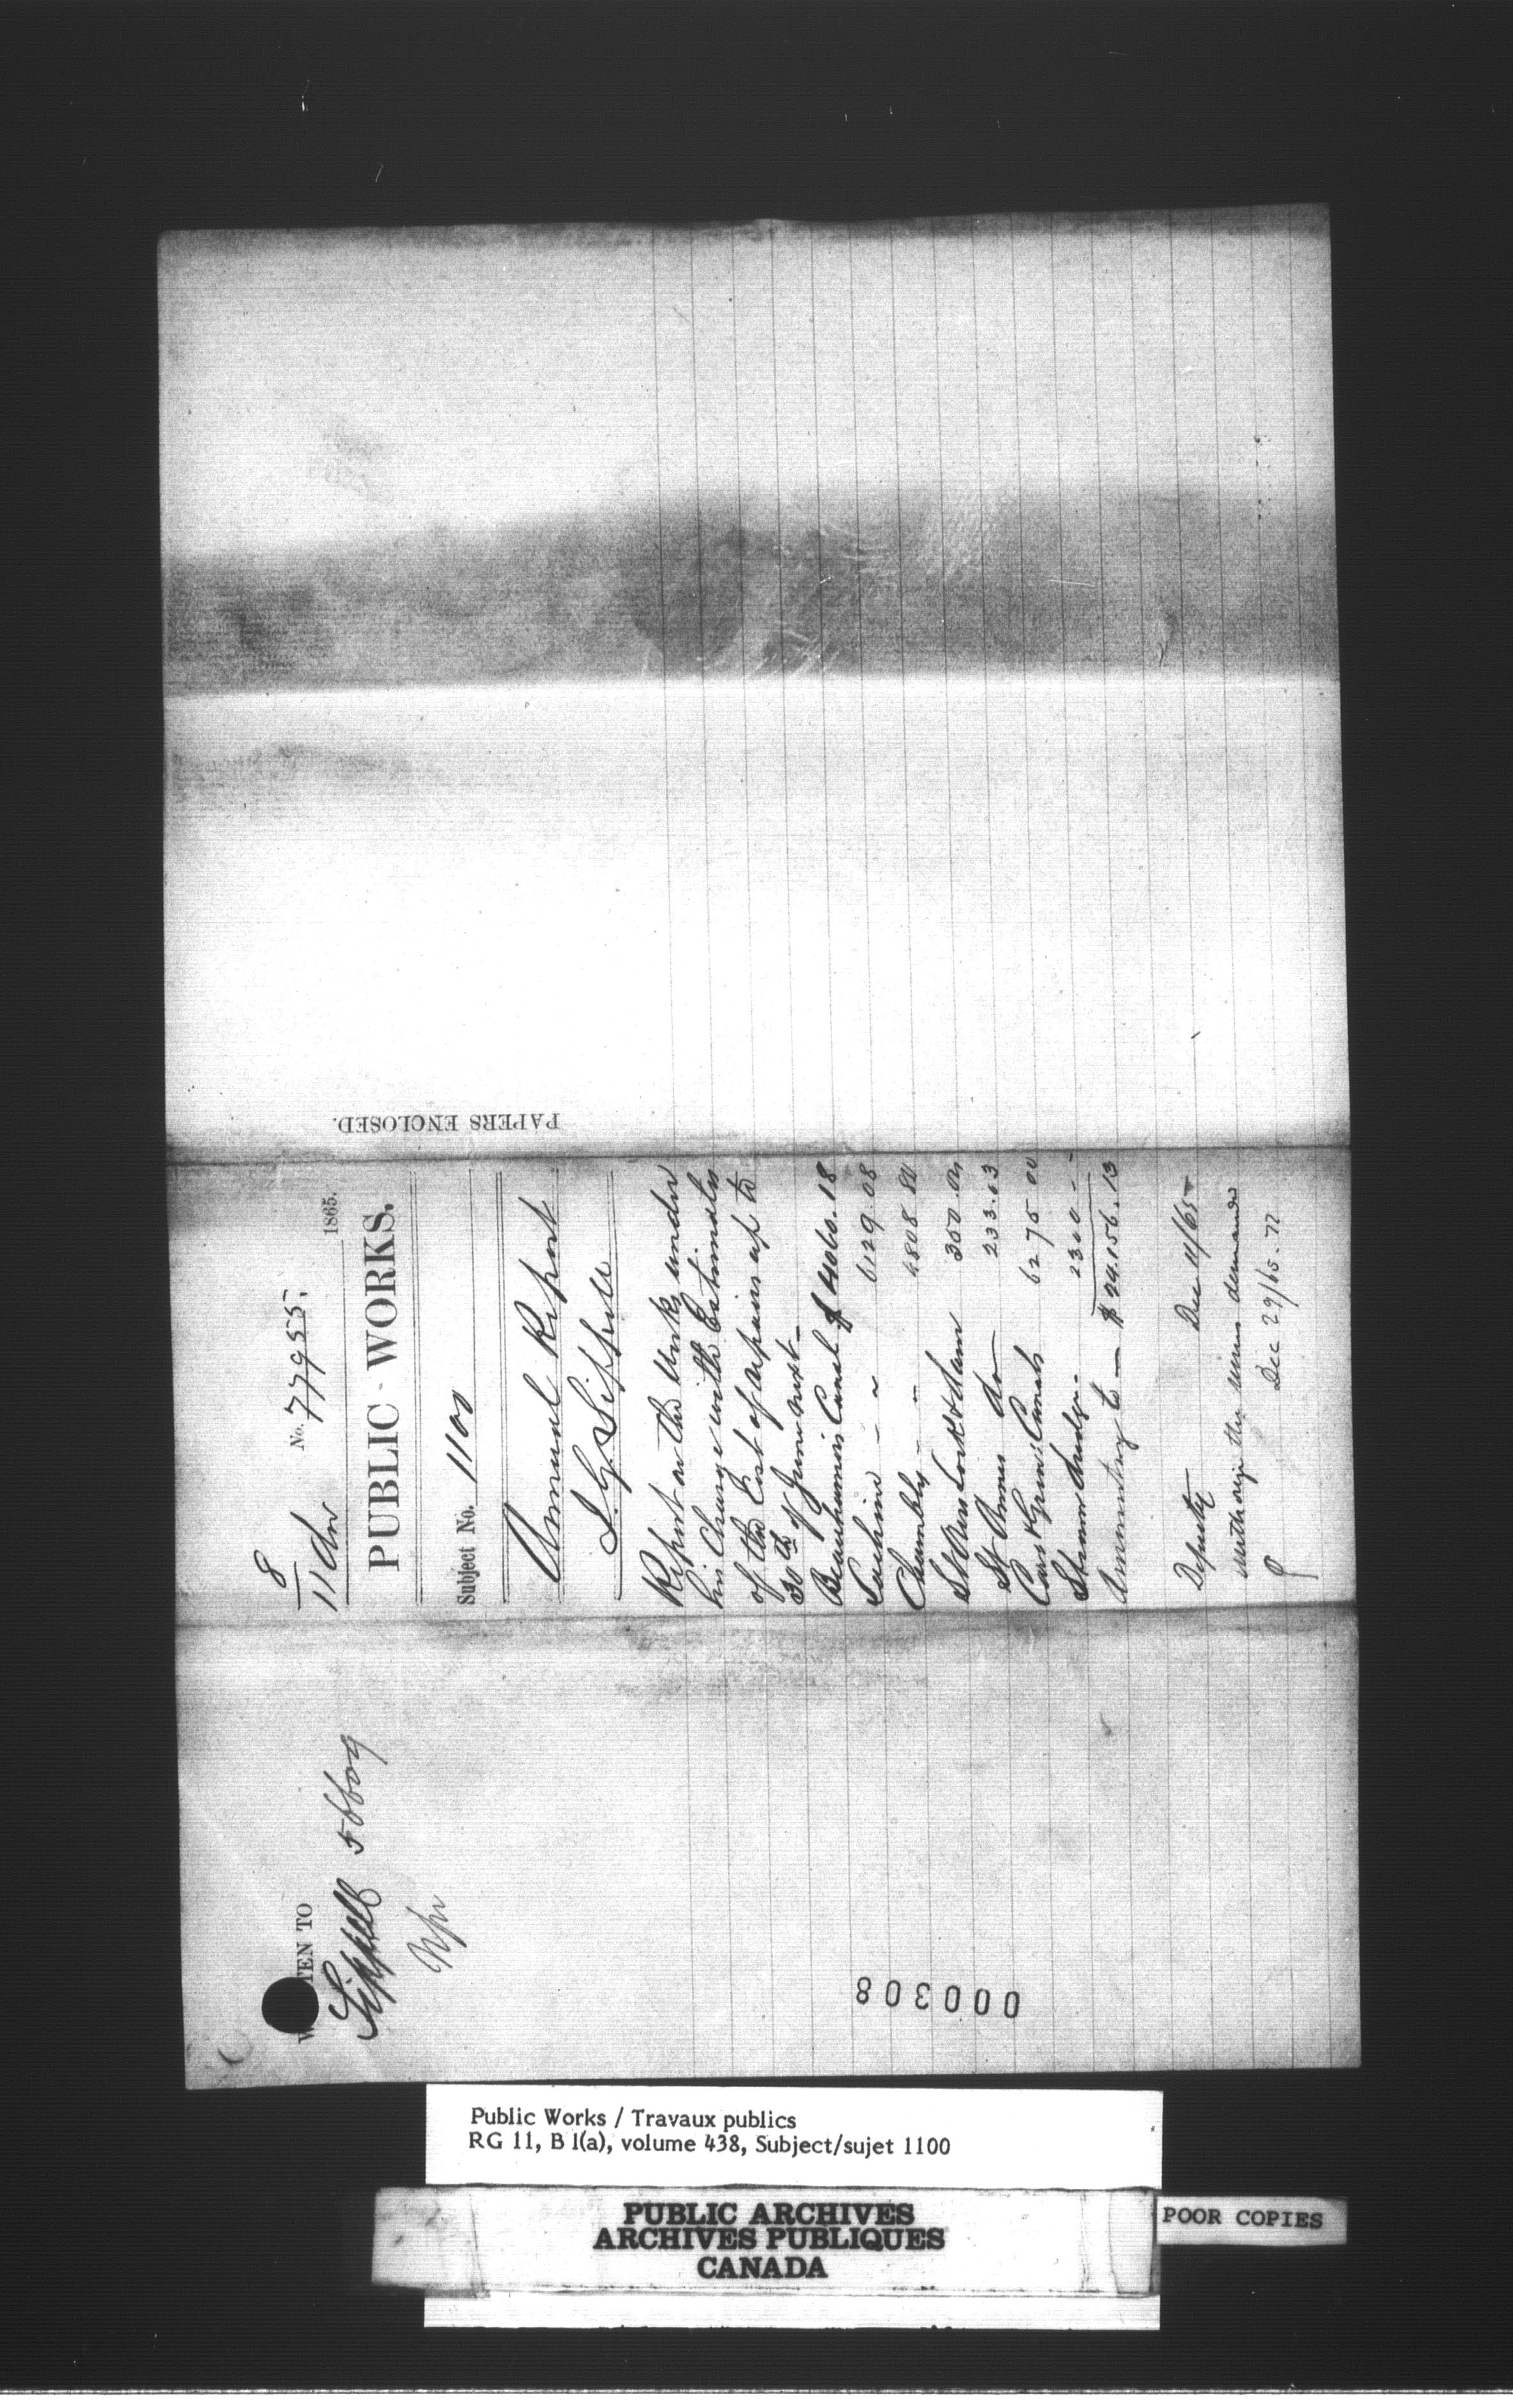 WRITTEN TO
Sippell 56609
8
11 Dec
No. 77955.
1865.
PUBLIC WORKS.
Subject No. 1100
Annual Report
J G Sippell
Report on the Works under
his Charge with Estimates
of the Cost of repairs up to
30th of June next
Beauharnois Canal $ 4060.18
Lachine - " 6129.08
Chambly - " 4808 80
St Ours Lock & Dam 350.00
St Annes do 233.63
Cars & Gren: Canals 6275 00
Steam Dredge 2300 -
Amounting to — $ 24.156.13
Deputy Dec 11/65
Authorize the sums demanded
Dec 29/65.
PAPERS ENCLOSED.
000308
Public Works / Travaux publics
RG 11, B 1(a), volume 438, Subject/sujet 1100
PUBLIC ARCHIVES
ARCHIVES PUBLIQUES
CANADA
POOR COPIES